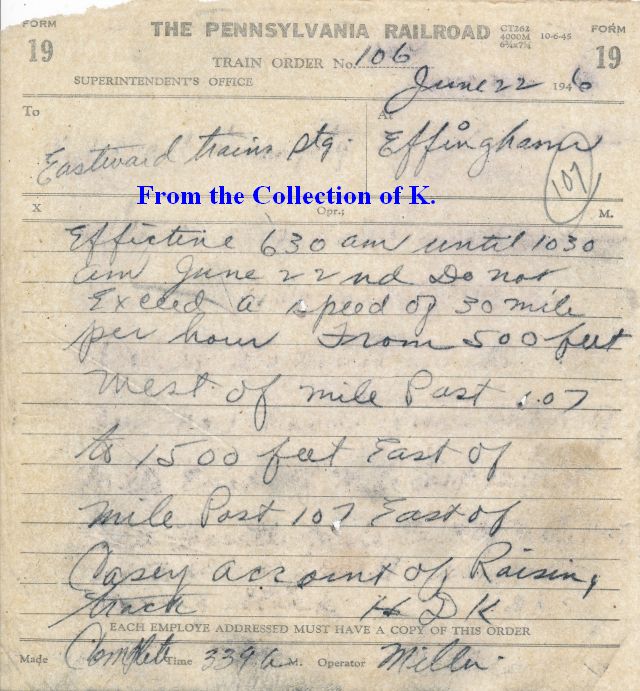 FORM 19
THE PENNSYLVANIA RAILROAD
CT262
4000M
6¾x7¼
10-6-45
FORM 19
TRAIN ORDER No. 106
SUPERINTENDENT'S OFFICE
June 22 1946
To
At
Eastward trains
Effingham
107
From the Collection of K.
X
Opr.;
M.
Effective 630 am until 1030
am June 22nd Do not
Exceed a speed of 30 mile
per hour From 500 feet
West of mile Post 107
to 1500 feet East of
mile Post 107 East of
Casey account of Raising
track HDK
EACH EMPLOYE ADDRESSED MUST HAVE A COPY OF THIS ORDER
Made Complete Time 339 A M. Operator Miller